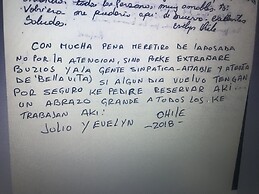 todas las personas muy amables
Volveria
Saludos. Evelyn Chile
CON MUCHA PENA ME RETIRO DE LA POSADA
NO POR LA ATENCION, SINO PORKE EXTRAÑARE
BUZIOS Y A LA GENTE SINPATICA-AMABLE Y ATENTA
DE 'BELLA VITA) SI ALGUN DIA VUELVO TENGAN
POR SEGURO KE PEDIRE RESERVAR AKI...
UN ABRAZO GRANDE A TODOS LOS KE
TRABAJAN AKI: CHILE
JULIO Y EVELYN -2018-